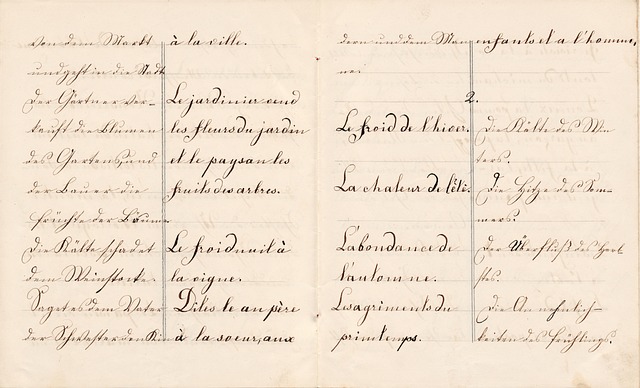 von dem Markt à la ville.
und geht in die Stadt
Der Gärtner ver- Le jardinier vend
kauft die Blumen les fleurs du jardin
des Gartens, und et le paysan les
der Bauer die fruits des arbres.
früchte der Bäume.
Die Kälte schadet Le froid nuit à
dem Weinstocke. la vigne.
Saget es dem Vater Dites le au père
der Schwester den Kin à la soeur, aux
dern und dem Man enfants et a l'homme,
ne.
2.
Le froid de l'hiver. Die Kälte des Win
ters.
La chaleur de l'été. Die Hitze des Som-
mers.
L'abondance de Der Überfluß des Herb
l'automne. stes.
Les agriments du Die Annehmlich-
printemps. keiten des Frühlings.